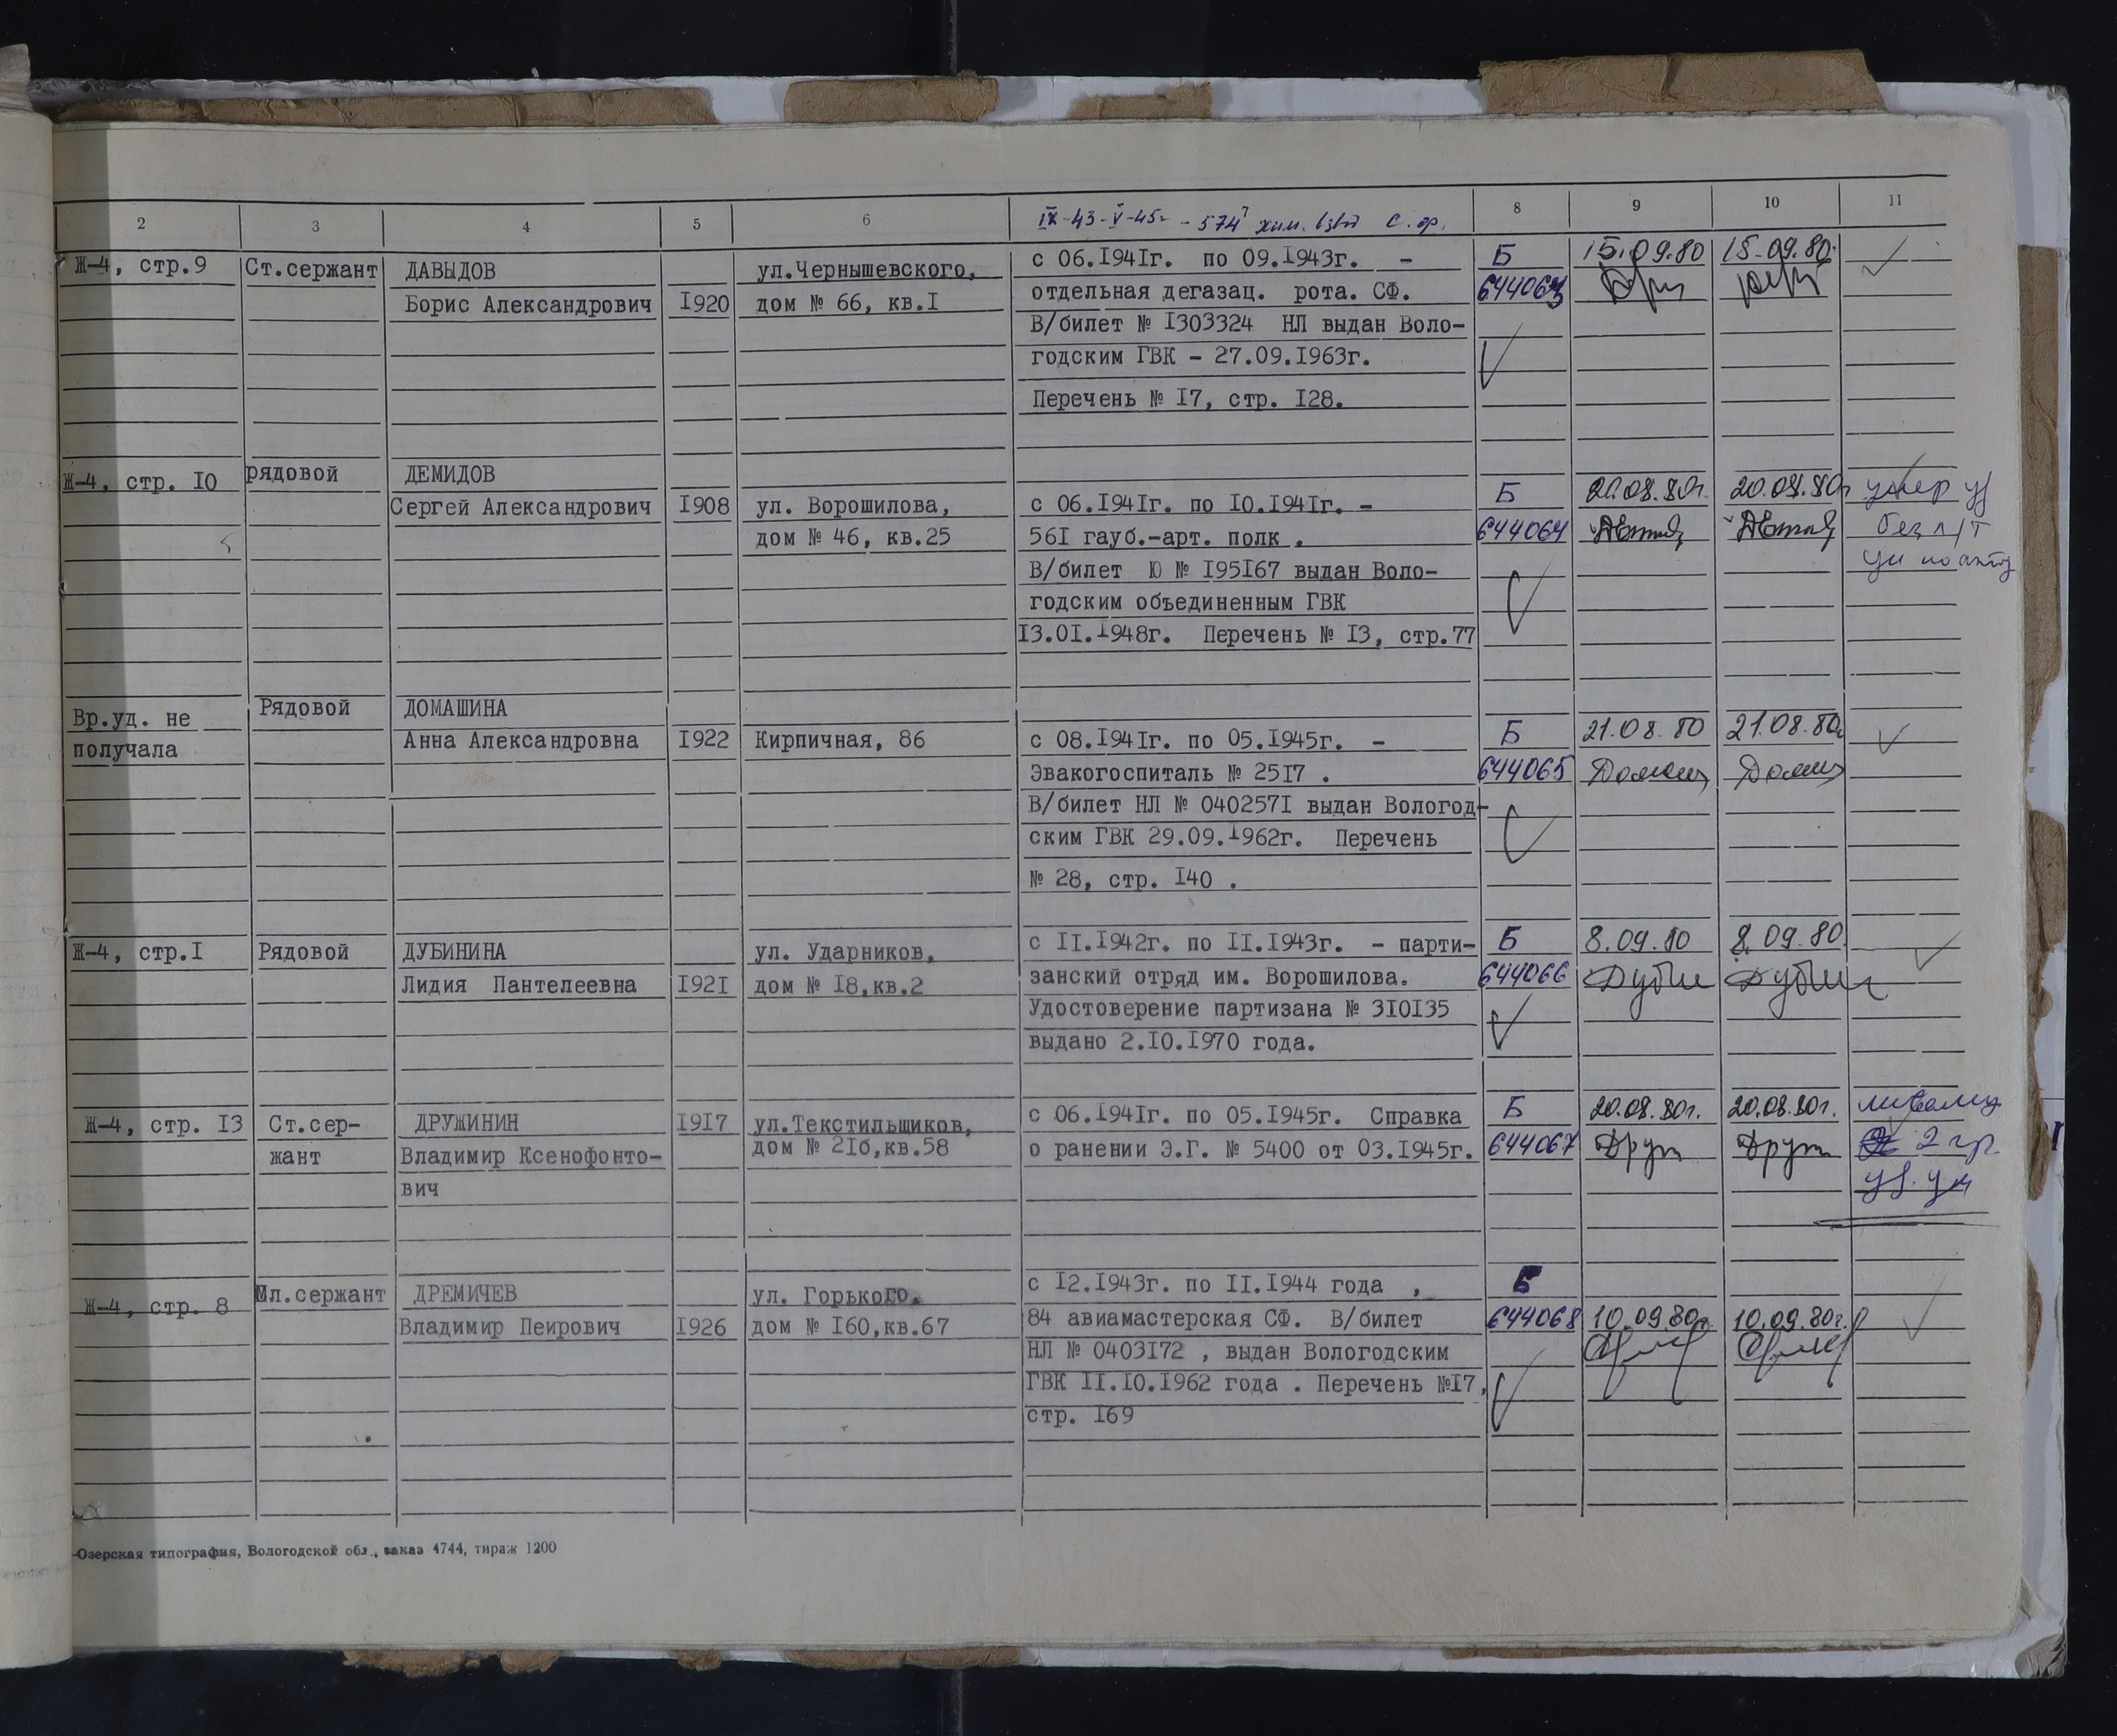 2 3 4 5 6 IX-43-V-45г - 574 хим. взвод С.ф. 8 9 10 11
Ж-4, стр.9 Ст.сержант ДАВЫДОВ ул.Чернышевского, с 06.I94Iг. по 09.I943г. - Б 15.09.80 15.09.80.
Борис Александрович I920 дом № 66, кв.I отдельная дегазац. рота. СФ. 644063
В/билет № I303324 НЛ выдан Воло-
годским ГВК - 27.09.I963г.
Перечень № I7, стр. I28.
Ж-4, стр. I0 рядовой ДЕМИДОВ Б 20.08.80г. 20.08.80г умер
Сергей Александрович I908 ул. Ворошилова, с 06.I94Iг. по I0.I94Iг. -
дом № 46, кв.25 56I гауб.-арт. полк . 644064 без
В/билет Ю № I95I67 выдан Воло-
годским объединенным ГВК
I3.0I.I948г. Перечень № I3, стр.77
Вр.уд. не Рядовой ДОМАШИНА
получала Анна Александровна I922 Кирпичная, 86 с 08.I94Iг. по 05.I945г. - Б 21.08.80 21.08.80г
Эвакогоспиталь № 25I7 . 644065
В/билет НЛ № 040257I выдан Вологод-
ским ГВК 29.09.I962г. Перечень
№ 28, стр. I40 .
Ж-4, стр.I Рядовой ДУБИНИНА ул. Ударников, с II.I942г. по II.I943г. - парти- Б 8.09.80 8.09.80.
Лидия Пантелеевна I92I дом № I8,кв.2 занский отряд им. Ворошилова. 644066
Удостоверение партизана № 3I0I35
выдано 2.I0.I970 года.
Ж-4, стр. I3 Ст.сер- ДРУЖИНИН I9I7 ул.Текстильщиков, с 06.I94Iг. по 05.I945г. Справка Б 20.08.80г. 20.08.80г.
жант Владимир Ксенофонто- дом № 2Iб,кв.58 о ранении Э.Г. № 5400 от 03.I945г. 644067 2 гр
вич
Мл.сержант ДРЕМИЧЕВ ул. Горького, с I2.I943г. по II.I944 года , Б
Ж-4, стр. 8 Владимир Пеирович I926 дом № I60,кв.67 84 авиамастерская СФ. В/билет 644068 10.09.80г 10.09.80г.
НЛ № 0403I72 , выдан Вологодским
ГВК II.I0.I962 года . Перечень №I7,
стр. I69
Озерская типография, Вологодской обл., заказ 4744, тираж 1200